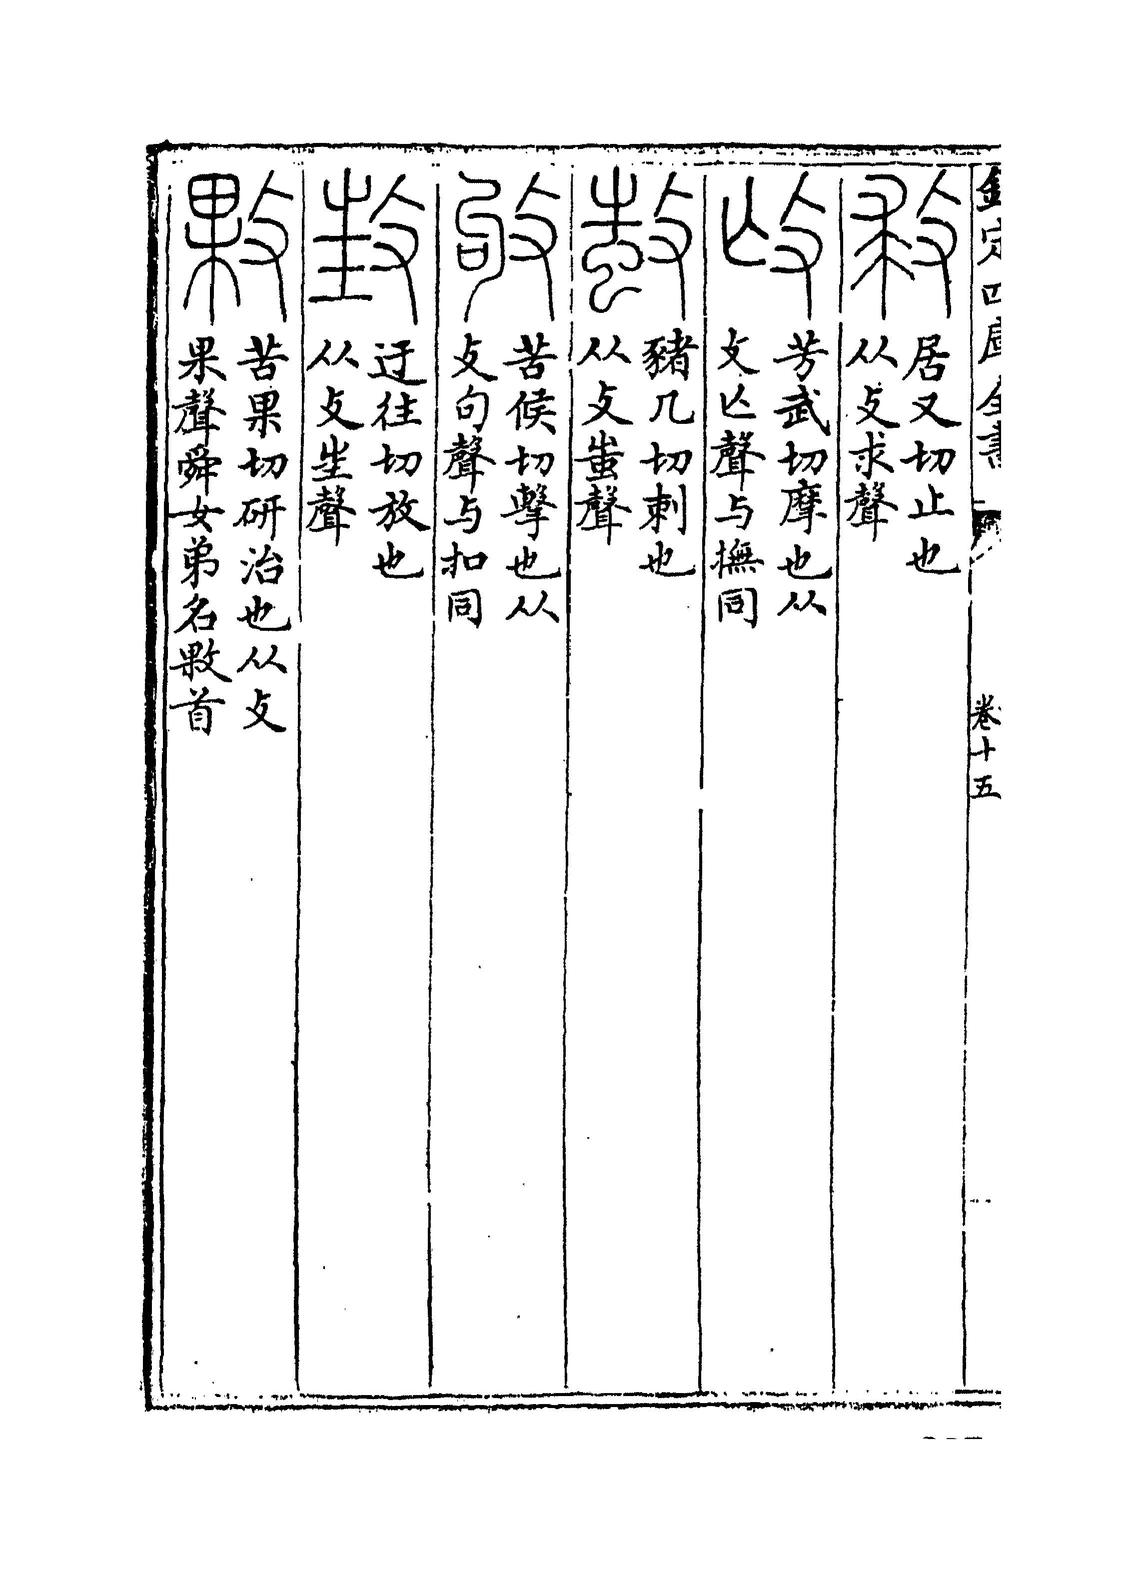 欽定四庫全書
卷十五
救
居又切止也
从攴求聲
芳武切摩也从
攴亾聲与撫同
豬几切刺也
从攴蚩聲
敂
苦候切擊也从
攴句聲与扣同
迂往切放也
从攴㞷聲
敤
苦果切研治也从攴
果聲舜女弟名敤首